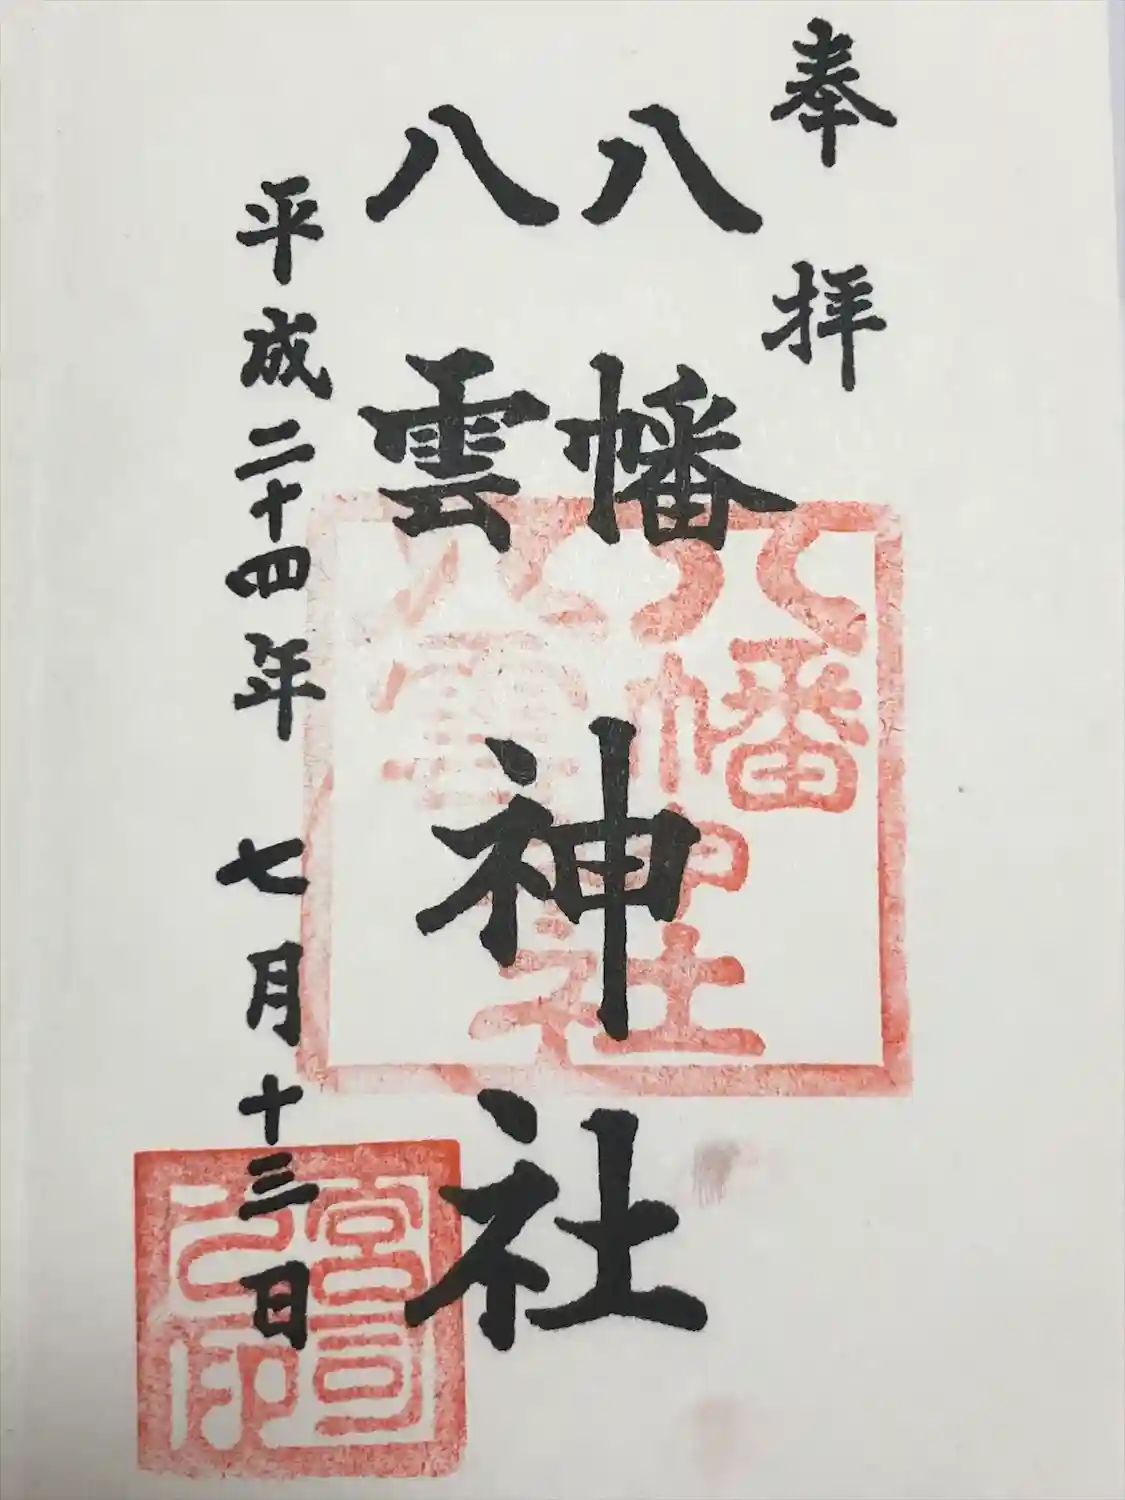 奉拝
八幡
八雲
神社
平成二十四年 七月十三日
八幡
八雲
神社
宮司
之印